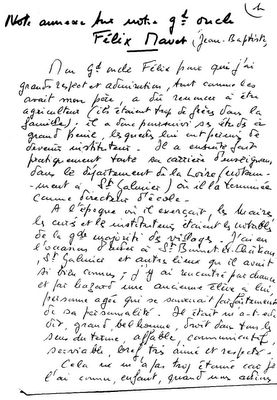 Note annexe sur notre gd oncle
Félix Mavet (Jean-Baptiste)
Mon Gd oncle Félix pour qui j'ai
grand respect et admiration, tout comme les
avait mon père, a dû renoncer à être
agriculteur (ils étaient trop de frères dans la
famille); il a donc poursuivi ses études à
grand peine, lesquelles lui ont permis de
devenir instituteur. Il a ensuite fait
pratiquement toute sa carrière d'enseignant
dans le département de la Loire (notam-
ment à St Galmier) où il l'a terminée
comme directeur d'école.
A l'époque où il exerçait, les maires,
les curés et les instituteurs étaient les notables
de la gde majorité des villages. J'ai eu
l'occasion d'aller à St Bonnet
St Galmier et autres lieux qu'il avait
si bien connus; j'y ai rencontré par chance
et par hasard une ancienne élève à lui,
personne âgée qui se souvenait parfaitement
de sa personnalité. Il était m'a-t-elle
dit, grand, bel homme, droit dans tous les
sens du terme, affable, communicatif,
serviable, bref très aimé et respecté.
Cela ne m'a pas trop étonné car je
l'ai connu, enfant, quand nous allions